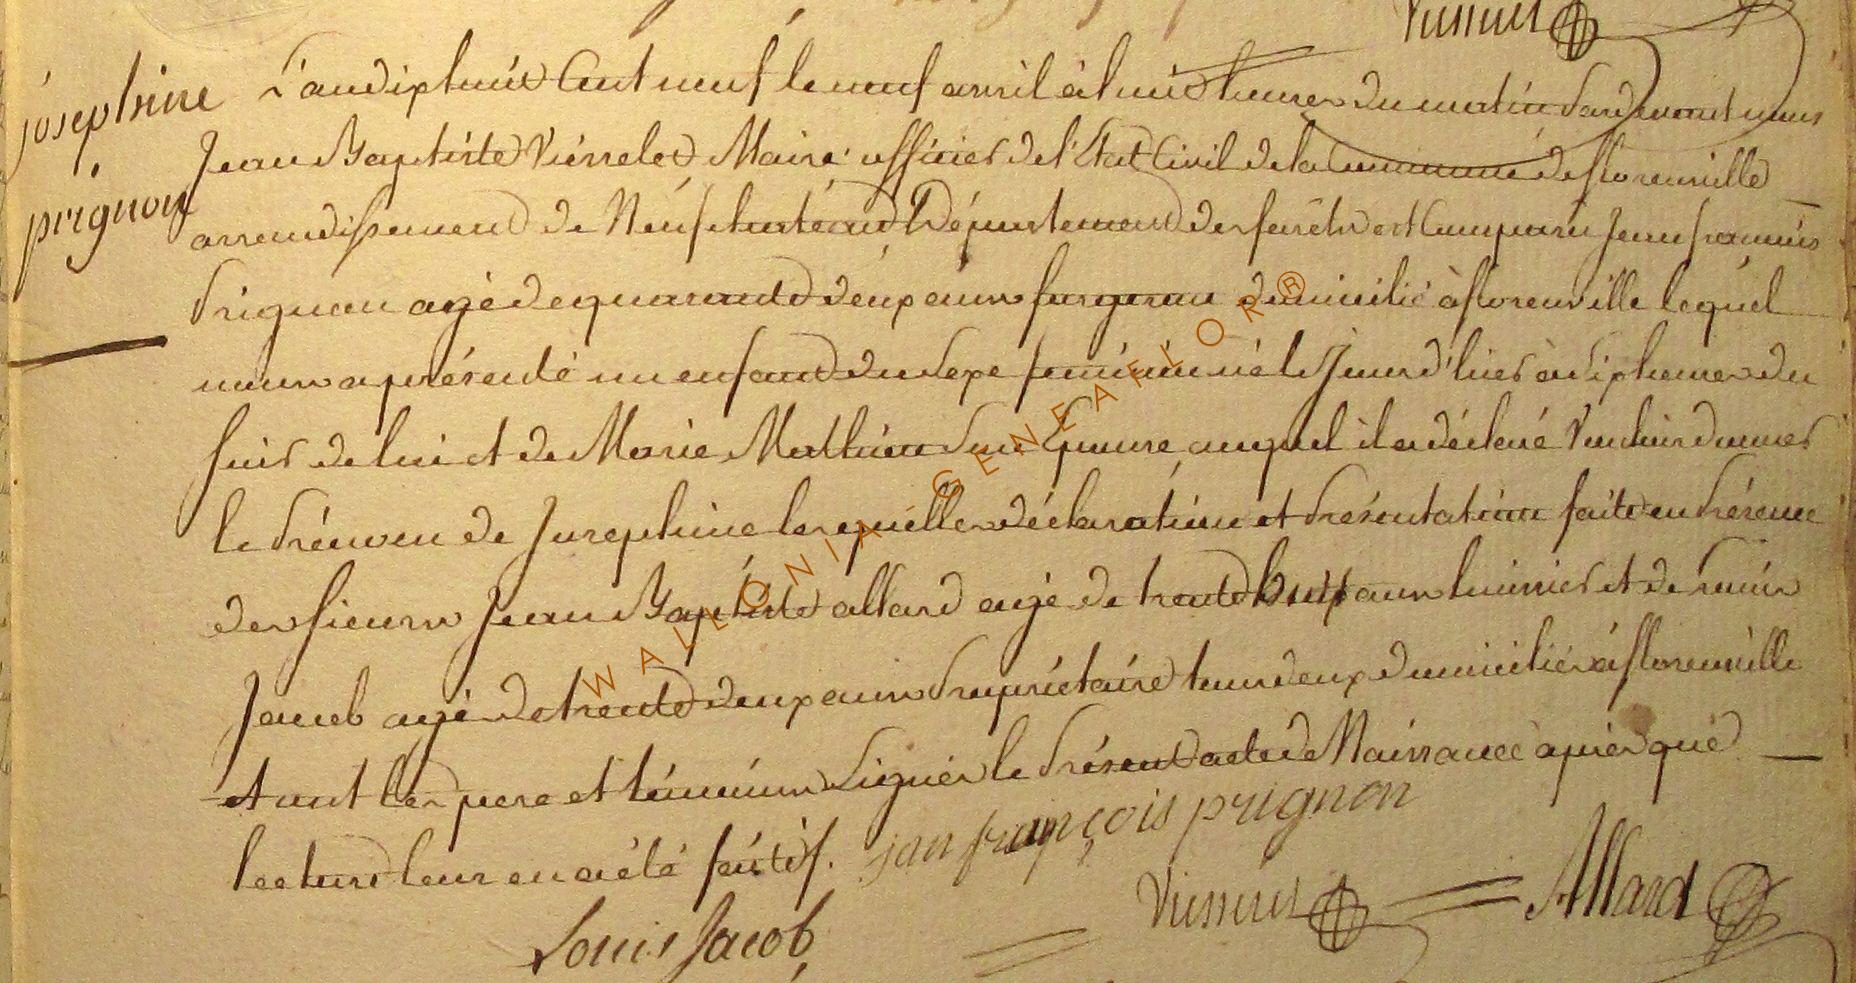 josephine
prignon
L'an dix huit Cent neuf le neuf avril à huit heures du matin Pardevant nous
Jean Baptiste Maire officier de l'Etat Civil de la Commune de florenville
arrondissement de Neufchateau Département des forêts est Comparu Jean françois
Prignon agé de quarante deux ans forgeron domicilié à florenville lequel
nous a présenté un enfant du Sexe féminin né le Jour d'hier à dix heures du
soir de lui et de Marie Mathieu Son Epouse, auquel il a déclaré Vouloir donner
le Prénom de Josephine lesquelles déclaration et Présentation faite en Présence
des sieurs Jean Baptiste allard agé de trente huit ans huissier et de Louis
Jacob agé de trente deux ans Propriétaire tous deux domiciliés à florenville
et ont les pere et témoins Signés le Présent acte de Naissance après que
lecture leur en a été fait
jan françois prignon
Allard
Louis Jacob
WALLONIA - GENEAFLOR ®